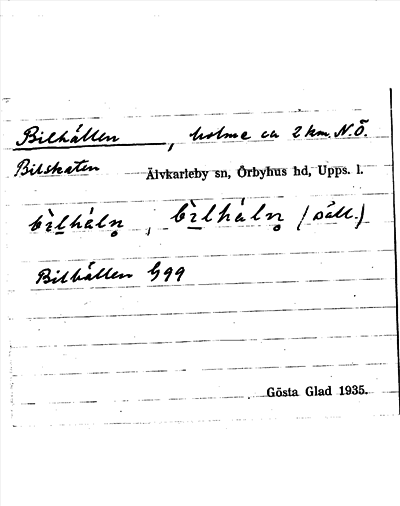 Bilhällen, holme ca 2 km. N.Ö.
Bilskaten Älvkarleby sn, Örbyhus hd, Upps. l.
bìlhálṇ, bìlhálṇ (säll.)
Bilhällen G99
Gösta Glad 1935.